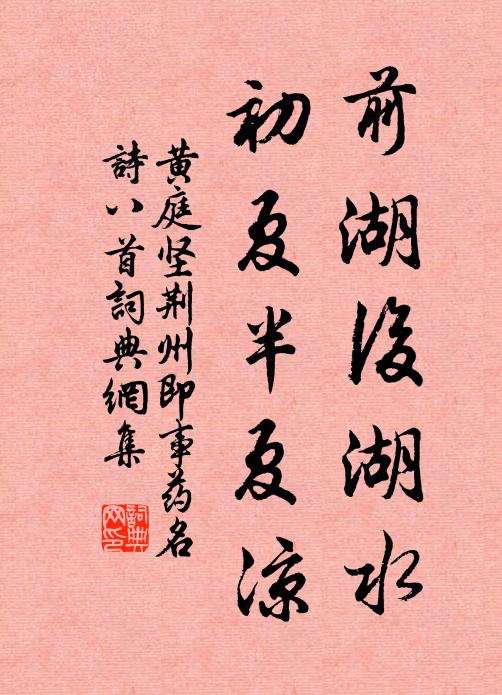 前湖後湖水
初夏半夏凉
黄庭坚荆州即事药名
詩八首詞典網集
詞典網印